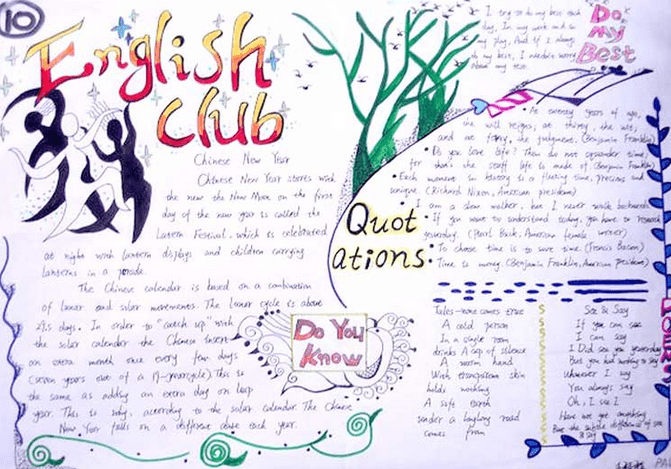 10
English
Club
Chinese New Year
Chinese New Year starts with
the new the New Moon on the first
day of the new year is called the
Lantern Festival, which is celebrated
at night with lantern displays and children carrying
lanterns in a parade.
The Chinese calendar is based on a combination
of lunar and solar movements. The lunar cycle is about
29.5 days. In order to "catch up" with
the solar calendar the Chinese insert
an extra month once every few
years out of a This is
the same as adding an extra day on leap
year. This is why, according to the solar calendar. The Chinese
New Year falls on a different date each year.
Do You
Know
I try to do my best each
day, In my work and in
my play, And if I always
do my best, I needn't worry
about my test
Do
My
Best
Quot
ations:
At twenty years of age,
the will reigns; at thirty, the wit;
and at forty, the judgment. (Benjamin Franklin)
Do you love life? Then do not squander time,
for that's the stuff life is made of (Benjamin Franklin)
Each moment in history is a fleeting time, precious and
unique. (Richard Nixon, American president)
I am a slow walker, but I never walk backwards.
If you want to understand today, you have to research
yesterday. (Pearl Buck, American female writer)
To choose time is to save time. (Francis Bacon)
Time is money. (Benjamin Franklin, American president)
Tales-none comes true
A cold person
In a single room
drinks A cup of silence
A warm hand
With skin
holds nothing
A safe earth
under a road
comes from
See & Say
If you can see
I can say
I Did see you yesterday
But you had nothing to say
Whenever I say
You always say
Oh, I see!
the subtle difference of see
& say